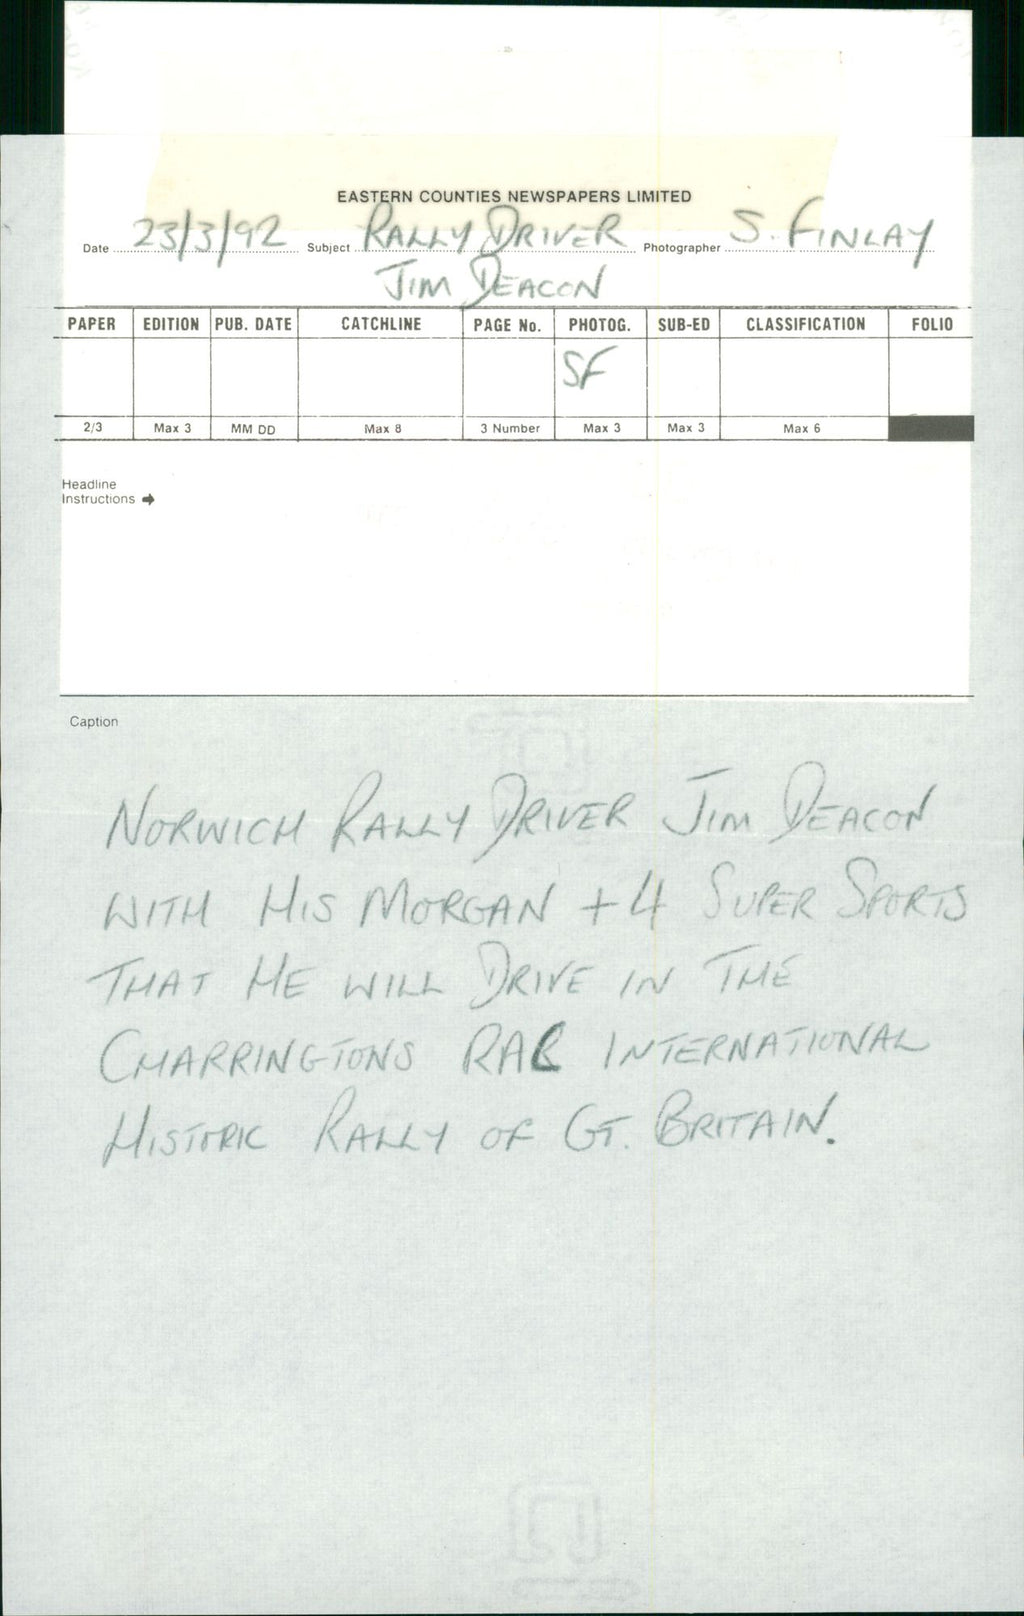 EASTERN COUNTIES NEWSPAPERS LIMITED
Date 23/3/92 Subject RALLY DRIVER Photographer S. FINLAY
JIM DEACON
PAPER EDITION PUB. DATE CATCHLINE PAGE No. PHOTOG. SUB-ED CLASSIFICATION FOLIO
SF
2/3 Max 3 MM DD Max 8 3 Number Max 3 Max 3 Max 6
Headline
Instructions ➔
Caption
NORWICH RALLY DRIVER JIM DEACON
WITH HIS MORGAN +4 SUPER SPORTS
THAT HE WILL DRIVE IN THE
CHARRINGTONS RAC INTERNATIONAL
HISTORIC RALLY OF GT. BRITAIN.